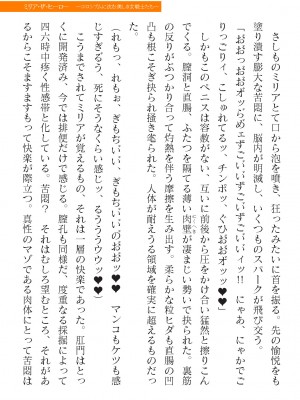 ミリア・ザ・ヒーロー
さしものミリアとて口から泡を噴き、狂ったみたいに首を振る。先の愉悦をも
塗り潰す膨大な苦悶に、脳内が明滅し、いくつものスパークが飛び交う。
「おおっおおオッらめェすごいすごいすごいィッ!! にゃあ、にゃかでご
りっごりィ、こしゅれてるッ、チンポッ、ぐひおおぉオッッ♥♥」
しかもこのペニスは容赦がない、互いに前後から圧をかけ合い猛然と擦りこん
でくる。膣洞と直腸、ふたつを隔てる薄い肉壁が凄まじい勢いで抉られた。裏筋
の反りがぶつかり合って灼熱を伴う摩擦を生み出す。柔らかな粒ヒダも直腸の凹
凸も根こそぎ抉られ掻き毟られた。人体が耐えうる領域を確実に超えるものだっ
た。
「れもっ、れもぉ、ぎもちいい、ぎもちいいのおおッ♥♥ マンコもケツも感
じすぎるう、死にそうなくらい感じッ、るううううウウッ♥♥」
こうまでされてミリアが覚えるもの、それは一層の快楽であった。肛門はとう
に開発済み、今では排便だけで感じる。膣孔も同様だ、度重なる採掘によって
四六時中疼く性感帯と化している。苦悶? それはむしろ望むところ、それがあ
るからこそますますもって快楽が際立つ。真性のマゾである肉体にとって苦悶は